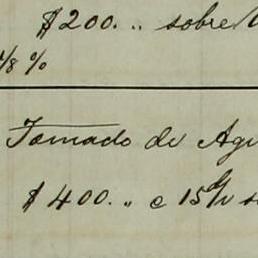 $200. .. sobre
7/8 %
Tomado de Agu
$400. .. c 15 d/v s